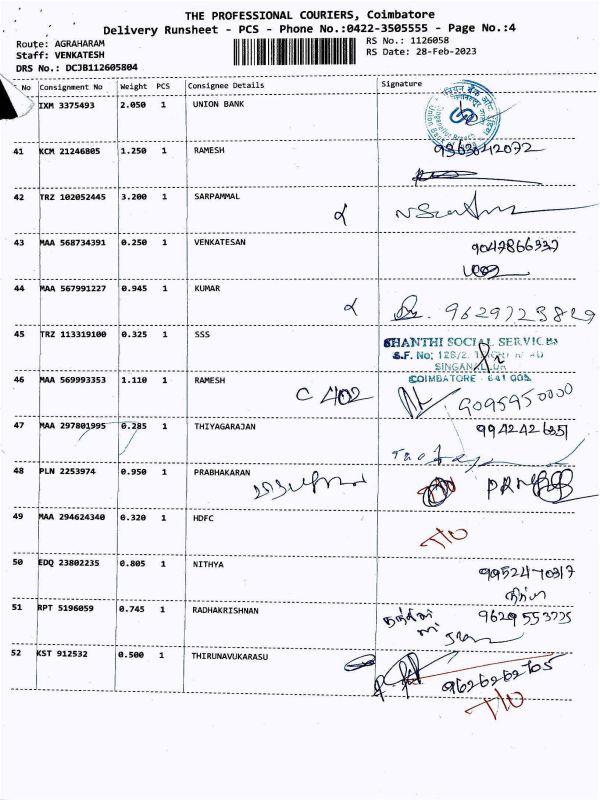 THE PROFESSIONAL COURIERS, Coimbatore
Delivery Runsheet - PCS - Phone No.:0422-3505555 - Page No.:4
Route: AGRAHARAM
Staff: VENKATESH
DRS No.: DCJB112605804
RS No.: 1126058
RS Date: 28-Feb-2023
No Consignment No Weight PCS Consignee Details Signature
IXM 3375493 2.050 1 UNION BANK
41 KCM 21246805 1.250 1 RAMESH 9363042072
42 TRZ 102052445 3.200 1 SARPAMMAL
43 MAA 568734391 0.250 1 VENKATESAN 9047866337
44 MAA 567991227 0.945 1 KUMAR 9629723829
45 TRZ 113319100 0.325 1 SSS
SHANTHI SOCIAL SERVICES
S.F. No: 128/2,
SINGANALLUR
COIMBATORE - 641 005
46 MAA 569993353 1.110 1 RAMESH C 402 9095950000
47 MAA 297801995 0.285 1 THIYAGARAJAN 9942426251
48 PLN 2253974 0.950 1 PRABHAKARAN
49 MAA 294624340 0.320 1 HDFC T/O
50 EDQ 23802235 0.805 1 NITHYA 9952470317
நித்யா
51 RPT 5196059 0.745 1 RADHAKRISHNAN 9629553775
52 KST 912532 0.500 1 THIRUNAVUKARASU 9626262705
T/O